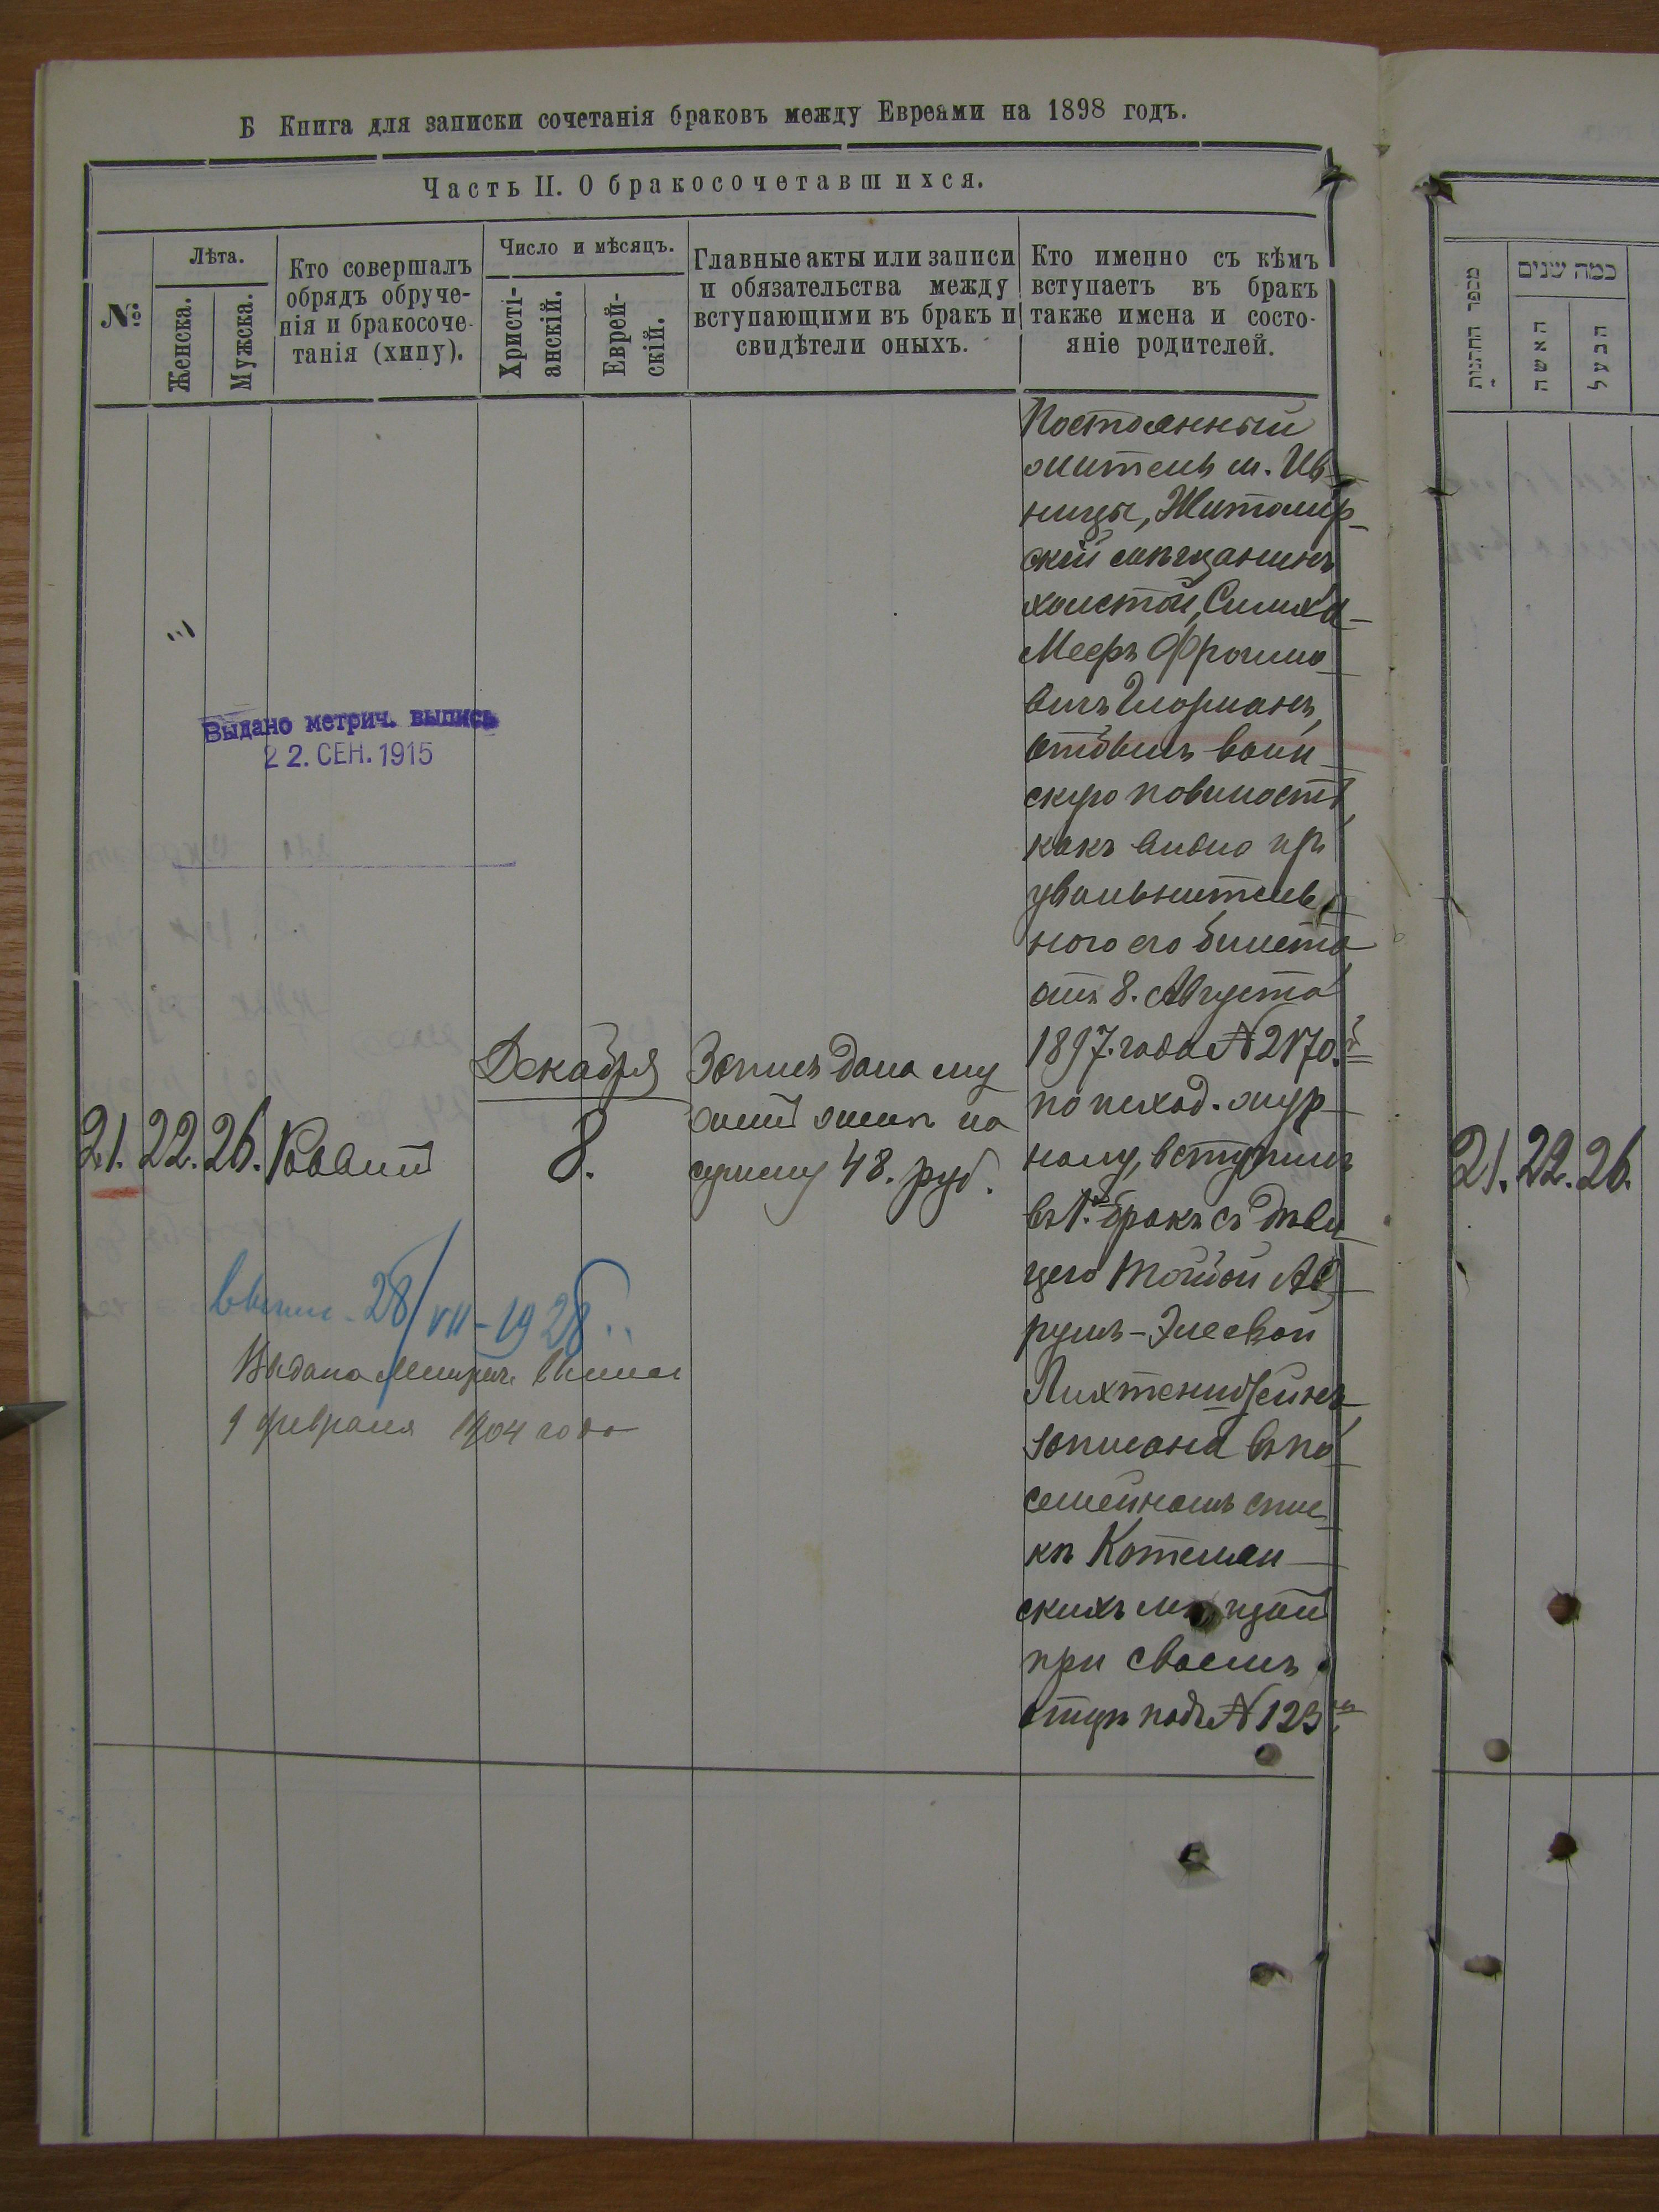 Б Книга для записки сочетанія браковъ между Евреями на 1898 годъ.
Часть II. О бракосочетавшихся.
№
Лѣта.
Женска.
Мужска.
Кто совершалъ
обрядъ обруче-
нія и бракосоче-
танія (хипу).
Число и мѣсяцъ.
Христі-
анскій.
Еврей-
скій.
Главные акты или записи
и обязательства между
вступающими въ бракъ и
свидѣтели оныхъ.
Кто именно съ кѣмъ
вступаетъ въ бракъ
также имена и состо-
яніе родителей.
21. 22. 26. Раввинъ
Декабря
8.
Запись дана му
жемъ женѣ на
сумму 48. руб.
Постоянный
житель м. Ив
ницы, Житомир-
скій мѣщанинъ
холостой, Симха-
Мееръ Фроимо
вичъ
отбылъ воин
скую повиность
какъ видно изъ
увольнитель
ного его билета
отъ 8. Августа
1897. года №
по исход. жур
налу, вступилъ
въ 1. бракъ съ дѣви
цею
Лихтенштейнъ
записана въ по
семейномъ спис
кѣ Котельян
скихъ мѣщанъ
при своемъ
отцѣ подъ № 123
Выдано метрич. выпись
22. СЕН. 1915
выпис - 28/VII - 1928
Выдана Метрич. выпись
9 февраля 1904 года
מספר החתונות
כמה שנים
האשה
הבעל
21. 22. 26.